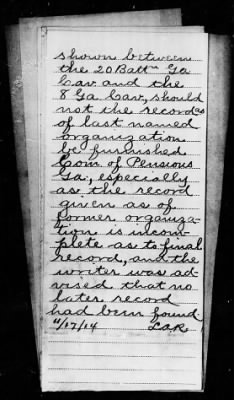 shown between
the 20 Battn Ga
Cav and the
8 Ga Cav, should
not the record as
of last named
organization
be furnished
Com of Pensions
Ga, especially
as the record
given as of
former organiza-
tion is incom-
plete as to final
record, and the
writer was ad-
vised that no
later record
had been found
11/17/14